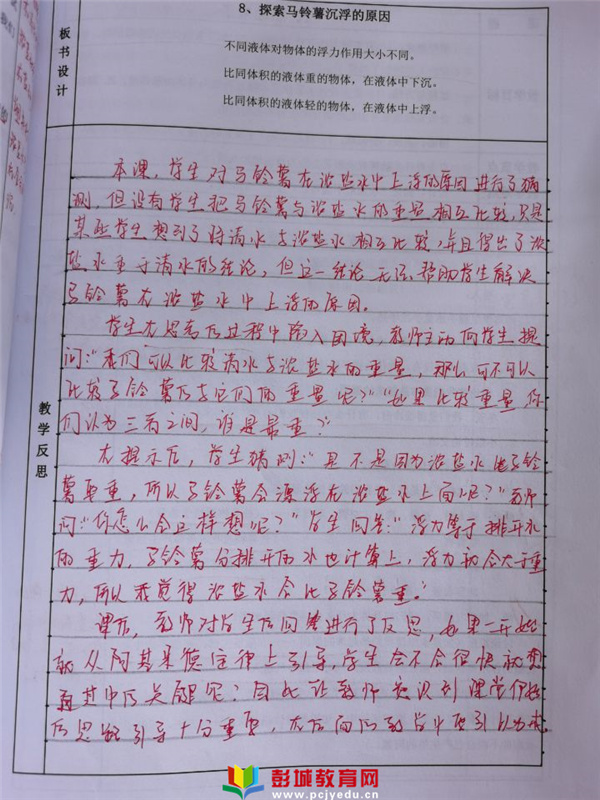 8、探索马铃薯沉浮的原因
板书设计
不同液体对物体的浮力作用大小不同。
比同体积的液体重的物体，在液体中下沉。
比同体积的液体轻的物体，在液体中上浮。
教学反思
本课，学生对马铃薯在浓盐水中上浮的原因进行了猜
测，但没有学生把马铃薯与浓盐水的重量相互比较，只是
某些学生想到了将清水与浓盐水相互比较，并且得出了浓
盐水重于清水的结论，但这一结论无法帮助学生解决
马铃薯在浓盐水中上浮的原因。
学生在思考的过程中陷入困境，教师主动向学生提
问：“我们可以比较清水与浓盐水的重量，那么可不可以
比较马铃薯与它们的重量呢？”“如果比较重量，你
们认为三者之间，谁是最重？”
在提示后，学生猜测：“是不是因为浓盐水比马铃
薯更重，所以马铃薯会漂浮在浓盐水上面呢？”教师
问：“你怎么会这样想呢？”学生回答：“浮力等于排开水
的重力，马铃薯的排开的水也计算上，浮力初会大于重
力，所以我觉得浓盐水会比马铃薯重。”
课后，教师对学生的回答进行了反思，如果一开始
就从阿基米德定律上引导，学生会不会很快就想
到其中的关键呢？因此让教师意识到课堂
的思路引导十分重要，在后面的教学中要引以为
彭城教育网
www.pcjyedu.cn